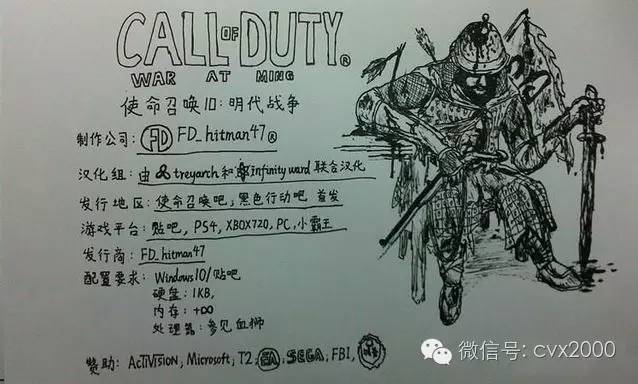 CALL OF DUTY®
WAR AT MING
使命召唤10:明代战争
制作公司: FD FD_hitman47®
汉化组:由 treyarch和 infinity ward 联合汉化
发行地区:使命召唤吧,黑色行动吧 首发
游戏平台:贴吧, PS4, XBOX720, PC, 小霸王
发行商: FD_hitman47
配置要求: Windows10/贴吧
硬盘: 1KB,
内存: +∞
处理器: 参见血狮
赞助: ACTIVISION, Microsoft, T2, EA, SEGA, FBI,
微信号: cvx2000